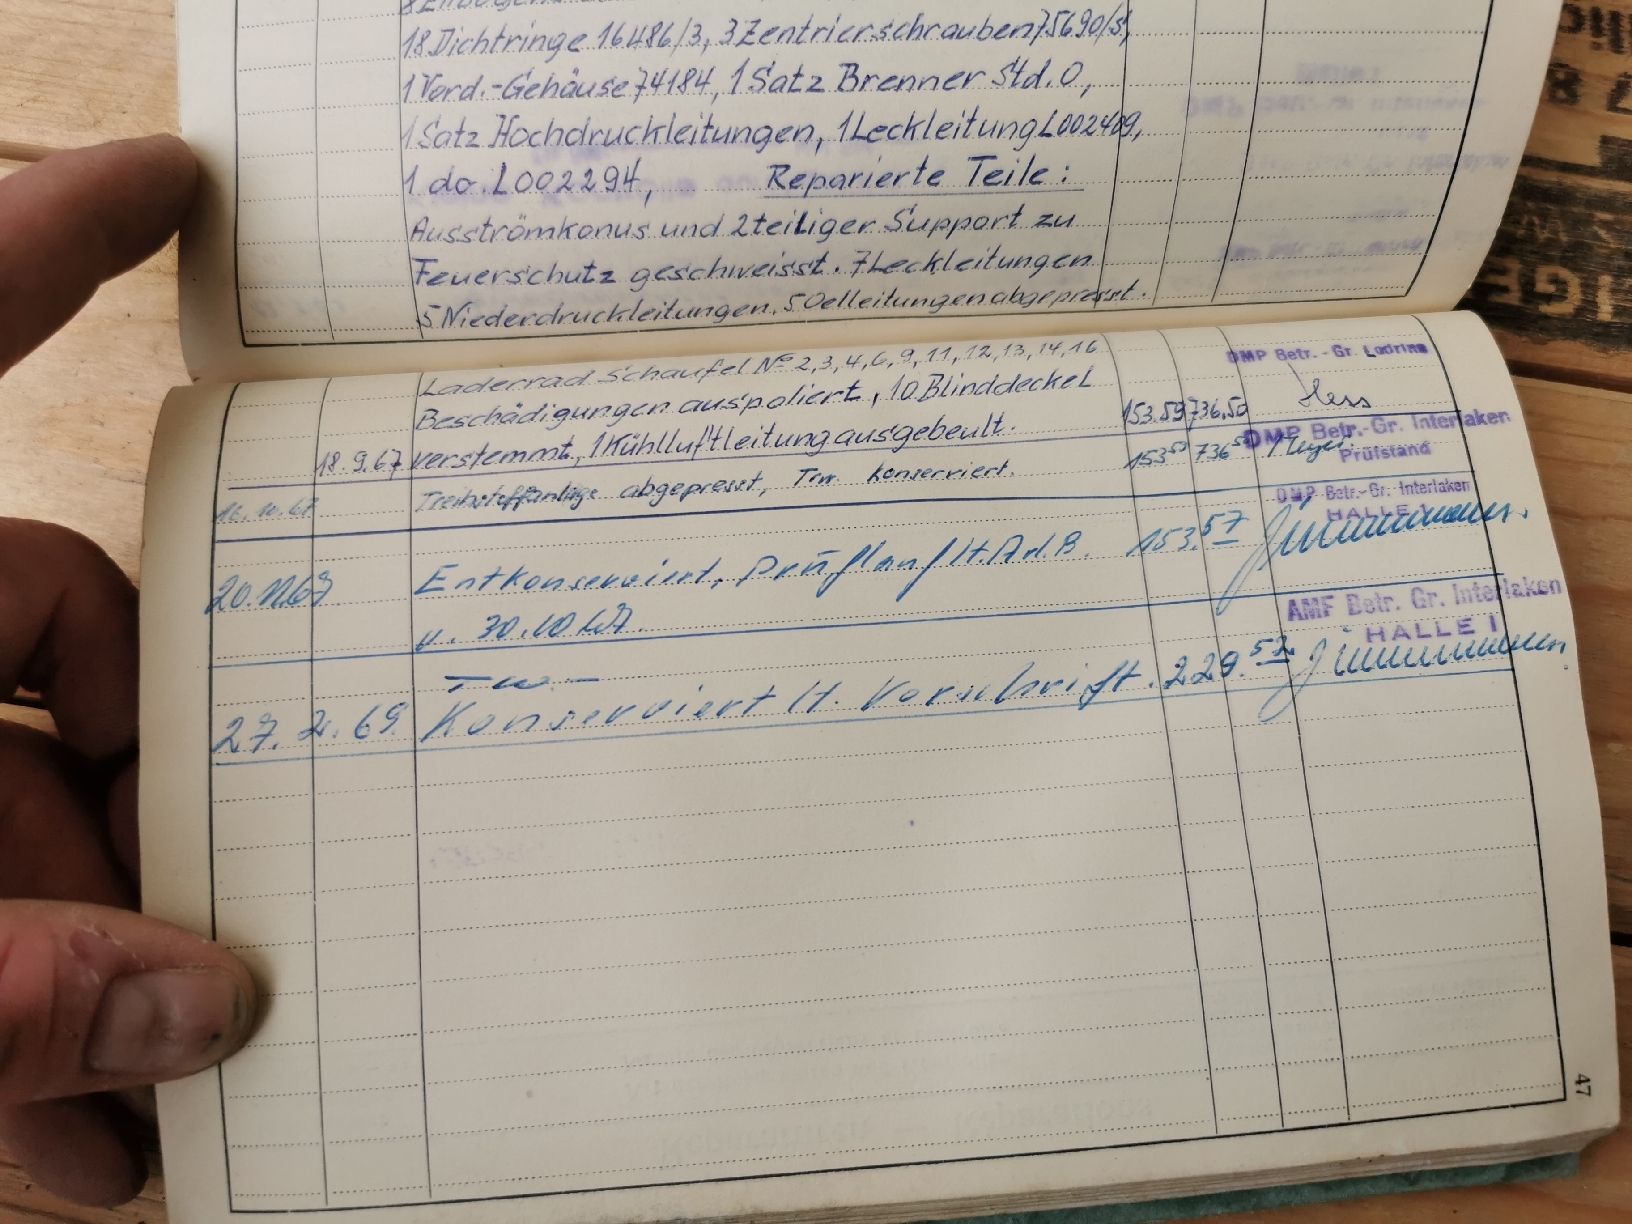 18 Dichtringe 16486/3, 3 Zentrierschrauben 75690/S,
1 Vord.-Gehäuse 74184, 1 Satz Brenner Std. 0,
1 Satz Hochdruckleitungen, 1 Leckleitung L002409,
1 do. L002294, Reparierte Teile:
Ausströmkonus und 2teiliger Support zu
Feuerschutz geschweisst. 7 Leckleitungen
5 Niederdruckleitungen, 5 Oelleitungen abgepresst.
Laderrad Schaufel No 2, 3, 4, 6, 9, 11, 12, 13, 14, 16
DMP Betr.-Gr. Lodrino
Beschädigungen auspoliert, 10 Blinddeckel
18.9.67 verstemmt, 1 Kühlluftleitung ausgebeult. 153.59 736,50 Hess
DMP Betr.-Gr. Interlaken
Prüfstand
16.10.67 abgepresst, Trw. konserviert. 153 59 736 50
DMP Betr.-Gr. Interlaken
HALLE 1
20.11.67 Entkonserviert, Prüflauf lt. A.d.B. 153.57
v. 30.10.67.
AMF Betr. Gr. Interlaken
HALLE I
Tw.-
27. 2. 69. Konserviert lt. Vorschrift. 229.57
47